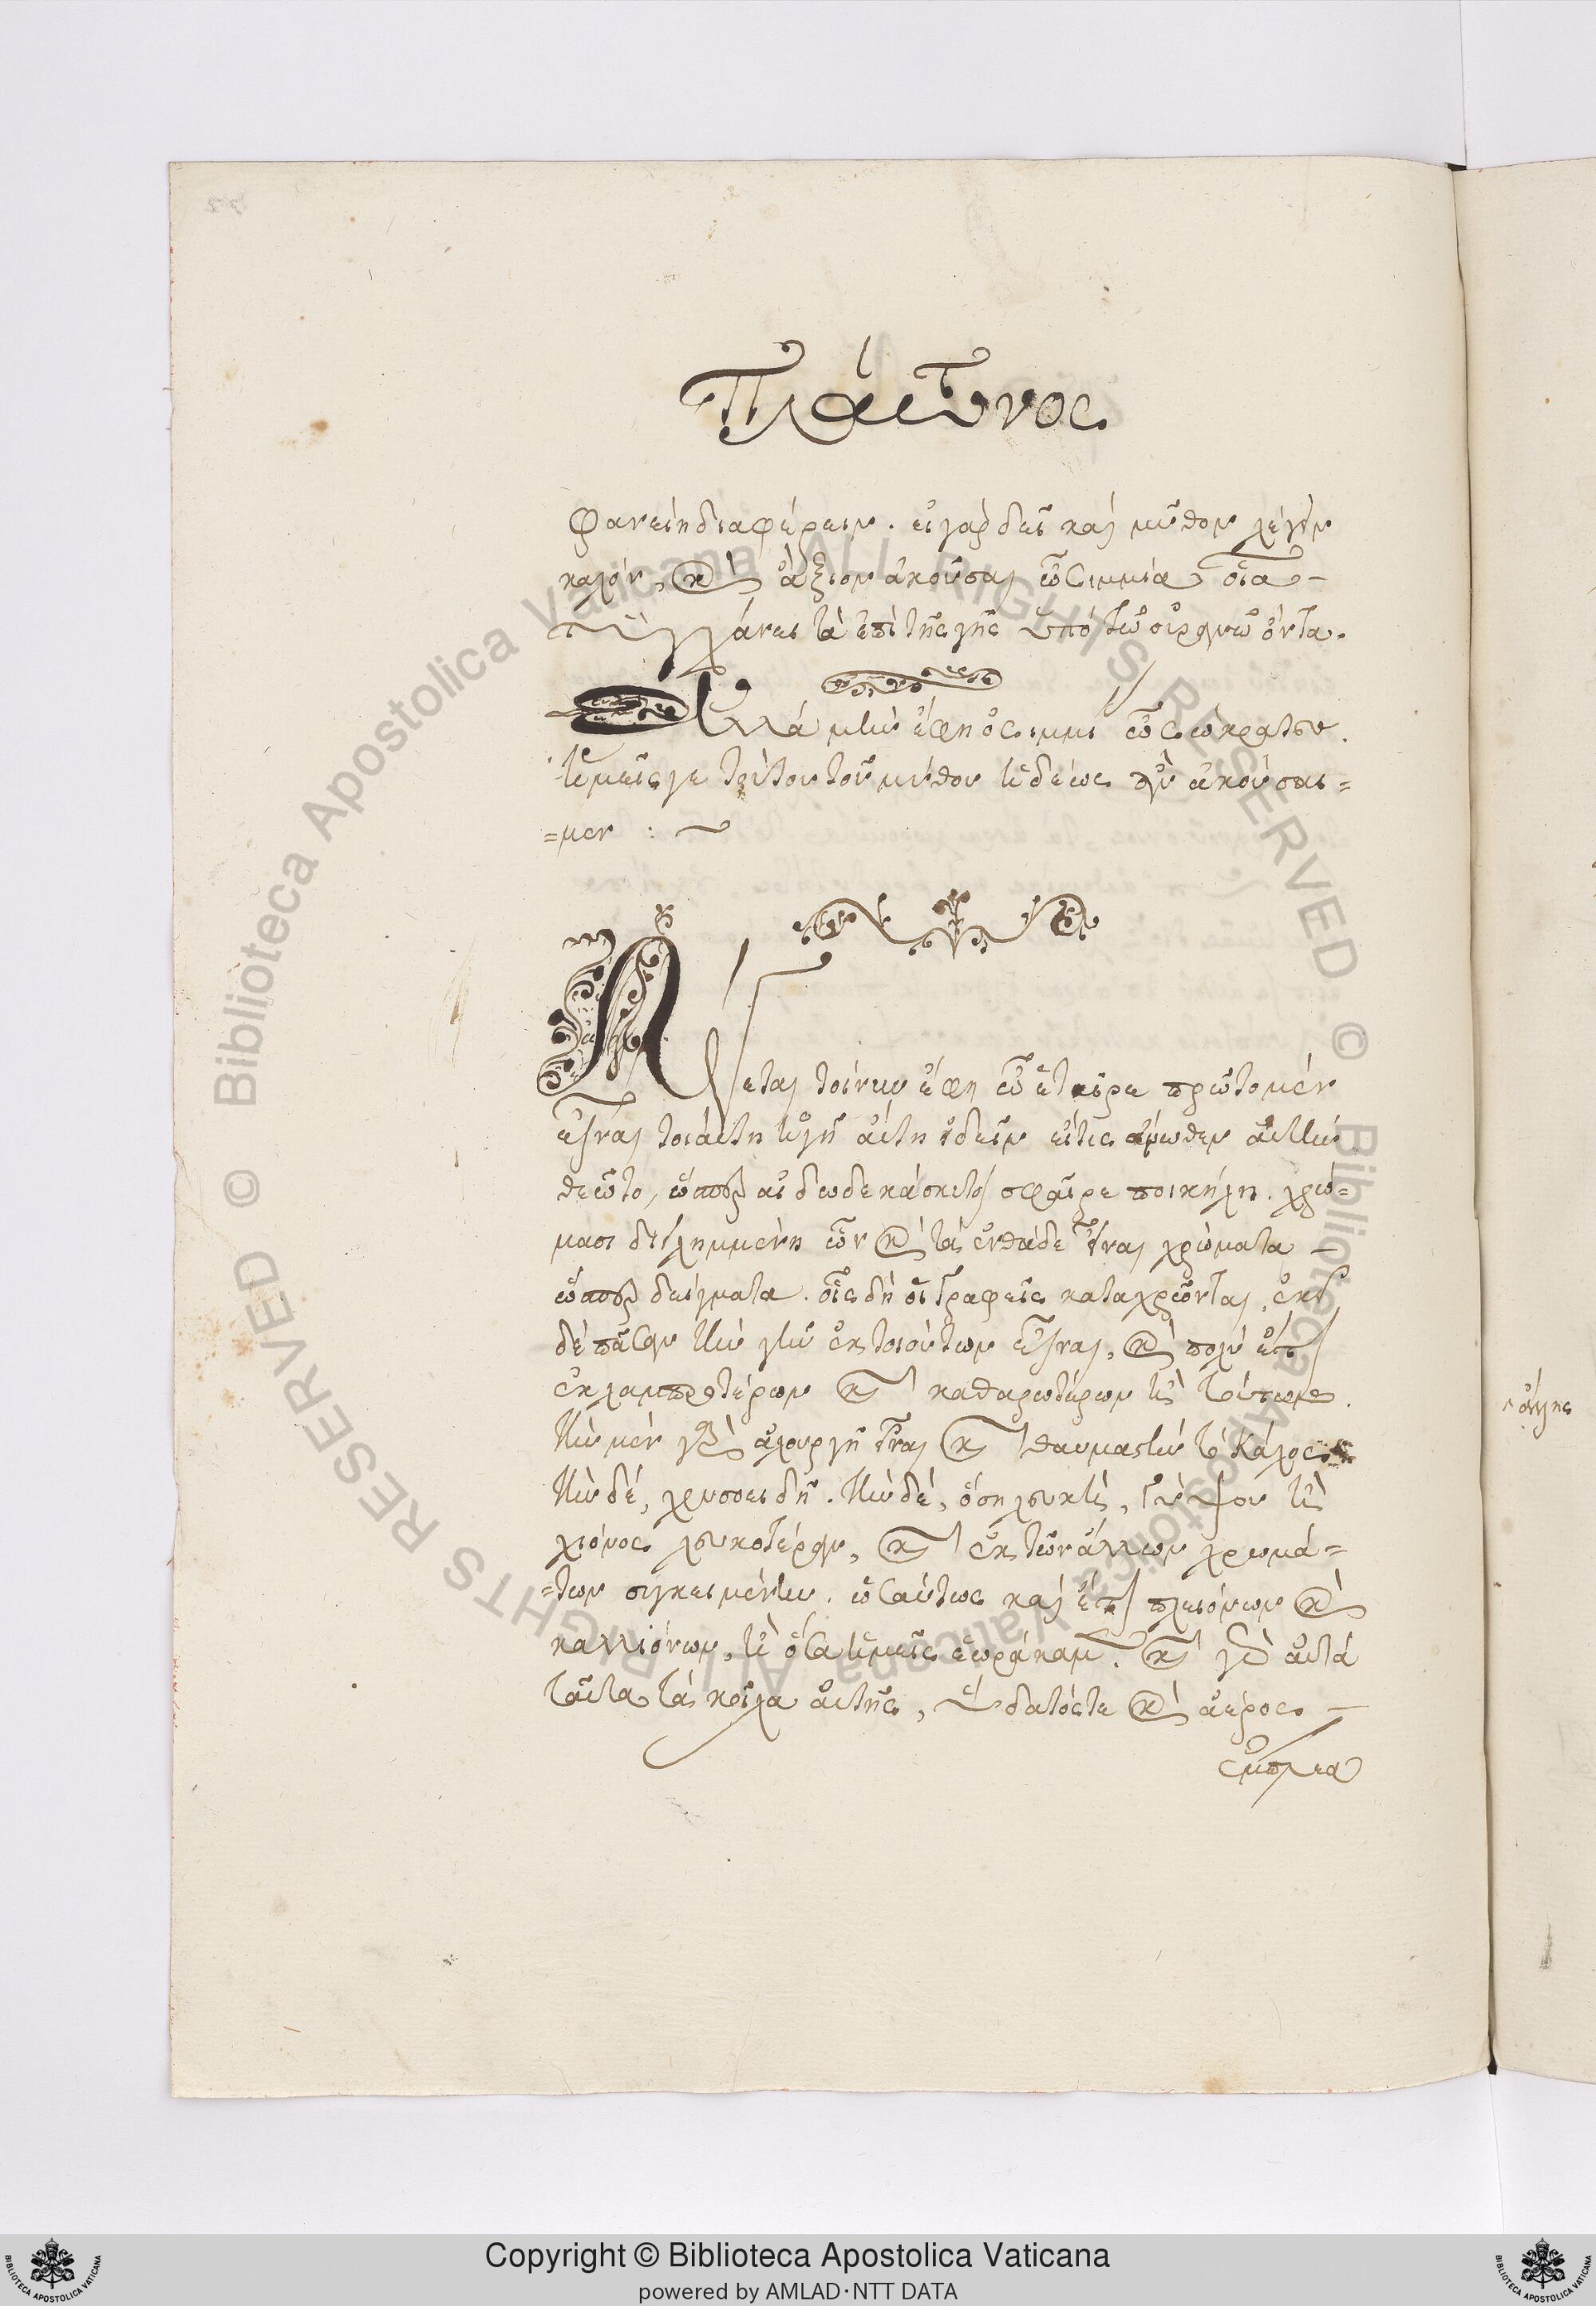 Πλάτωνος
φανείη διαφέρειν. εἰ γὰρ δεῖ καὶ μῦθον λέγειν
καλόν, καὶ ἄξιον ἀκοῦσαι ὦ σιμμία, οἷα
τυγχάνει τὰ ἐπὶ τῆς γῆς ὑπὸ τῶ οὐρανῶ ὄντα.
Ἀλλὰ μὴν ἔφη ὁ σιμμι ὦ σώκρατες.
ἡμεῖς γε τούτου τοῦ μύθου ἡδέως ἂν ἀκούσαι=
=μεν :~
Λέγεται τοίνυν ἔφη ὦ ἑταῖρε πρῶτον μὲν
εἶναι τοιαύτη ἡ γῆ αὕτη ἰδεῖν εἴτις ἄνωθεν αὐτὴν
θεῶτο, ὥσπερ αἱ δωδεκάσκυτοι σφαῖρε ποικήλη. χρώ=
μασι διειλημμένη ὧν καὶ τὰ ἐνθάδε εἶναι χρώματα
ὥσπερ δείγματα. οἷς δὴ οἱ γραφεῖς καταχρῶνται, ἐκεῖ
δὲ πᾶσαν τὴν γῆν ἐκ τοιούτων εἶναι, καὶ πολὺ ἔτι
ἐκ λαμπροτέρων καὶ καθαρωτέρων ἢ τούτων.
τὴν μὲν γὰρ ἁλουργῆ εἶναι καὶ θαυμαστὴν τὸ κάλος
τὴν δέ, χρυσοειδῆ. τὴν δέ, ὅση λευκὴ, γύψου ἢ
χιόνος λευκοτέραν, καὶ ἐκ τῶν ἄλλων χρωμά=
=των συγκειμένην. ὡσαύτως καὶ ἔτι πλειόνων καὶ
καλλιόνων, ἢ ὅσα ἡμεῖς ἑωράκαμεν. καὶ γὰρ αὐτὰ
ταῦτα τὰ κοῖλα αὐτῆς, ὕδατός τε καὶ ἀέρος
ἔμπλεα
Copyright © Biblioteca Apostolica Vaticana
powered by AMLAD·NTT DATA